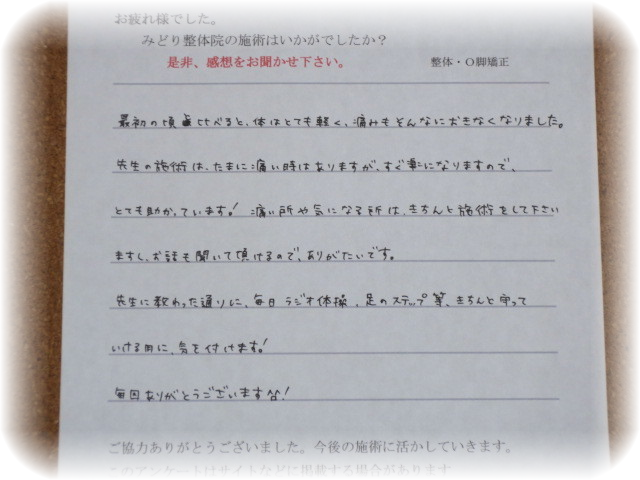 お疲れ様でした。
みどり整体院の施術はいかがでしたか？
是非、感想をお聞かせ下さい。 整体・O脚矯正
最初の頃と比べると、体はとても軽く、痛みもそんなにおきなくなりました。
先生の施術は、たまに痛い時はありますが、すぐ楽になりますので、
とても助かっています！ 痛い所や気になる所は、きちんと施術をして下さい
ますし、お話も聞いて頂けるので、ありがたいです。
先生に教わった通りに、毎日ラジオ体操、足のステップ等、きちんと守って
いける用に、気を付けます！
毎回ありがとうございます^^!
ご協力ありがとうございました。今後の施術に活かしていきます。
このアンケートはサイトなどに掲載する場合があります